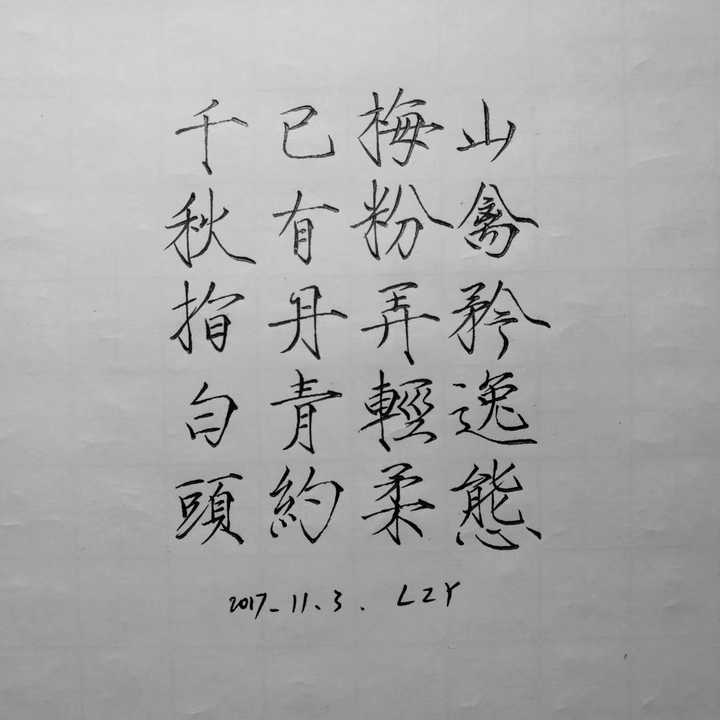 山禽矜逸態
梅粉弄輕柔
已有丹青約
千秋指白頭
2017.11.3. LZY